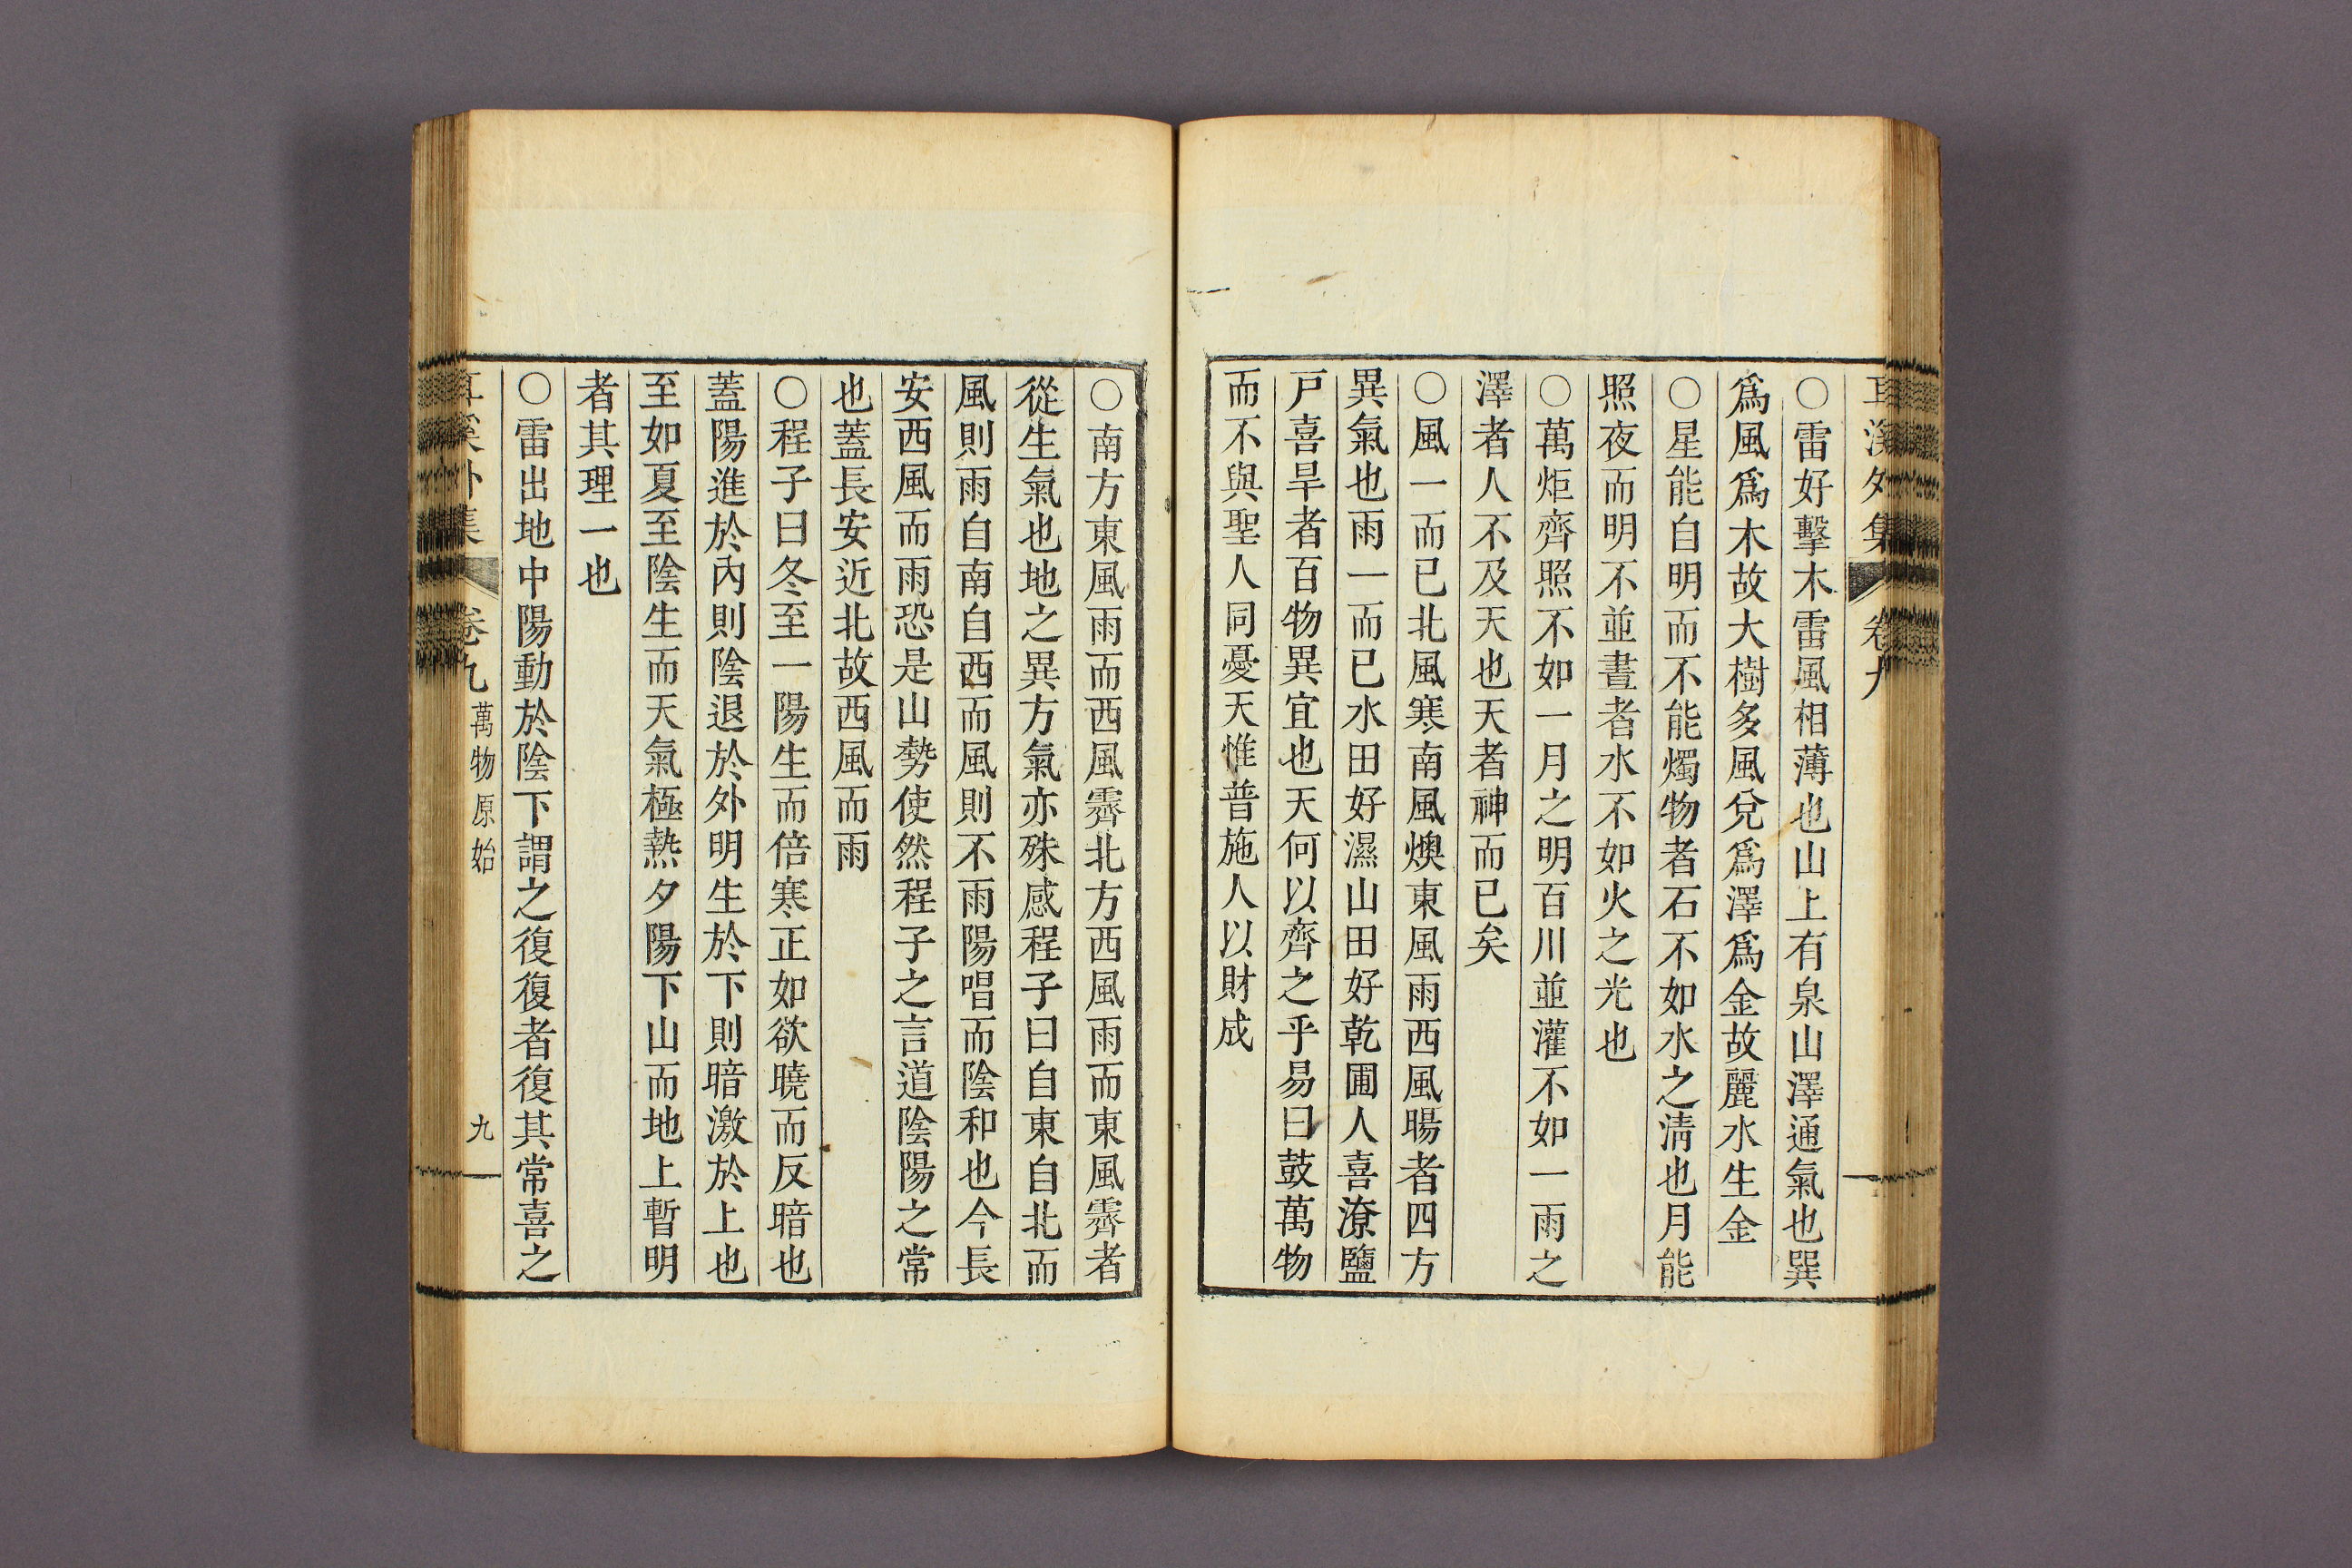 耳溪外集 卷九
○雷好擊木雷風相薄也山上有泉山澤通氣也巽
爲風爲木故大樹多風兌爲澤爲金故麗水生金
○星能自明而不能燭物者石不如水之淸也月能
照夜而明不並晝者水不如火之光也
○萬炬齊照不如一月之明百川並灌不如一雨之
澤者人不及天也天者神而已矣
○風一而已北風寒南風燠東風雨西風暘者四方
異氣也雨一而已水田好濕山田好乾圃人喜潦鹽
戸喜旱者百物異宜也天何以齊之乎易曰鼓萬物
而不與聖人同憂天惟普施人以財成
○南方東風雨而西風霽北方西風雨而東風霽者
從生氣也地之異方氣亦殊感程子曰自東自北而
風則雨自南自西而風則不雨陽唱而陰和也今長
安西風而雨恐是山勢使然程子之言道陰陽之常
也蓋長安近北故西風而雨
○程子曰冬至一陽生而倍寒正如欲曉而反暗也
蓋陽進於內則陰退於外明生於下則暗激於上也
至如夏至陰生而天氣極熱夕陽下山而地上暫明
者其理一也
○雷出地中陽動於陰下謂之復復者復其常喜之
耳溪外集 卷九 萬物原始 九